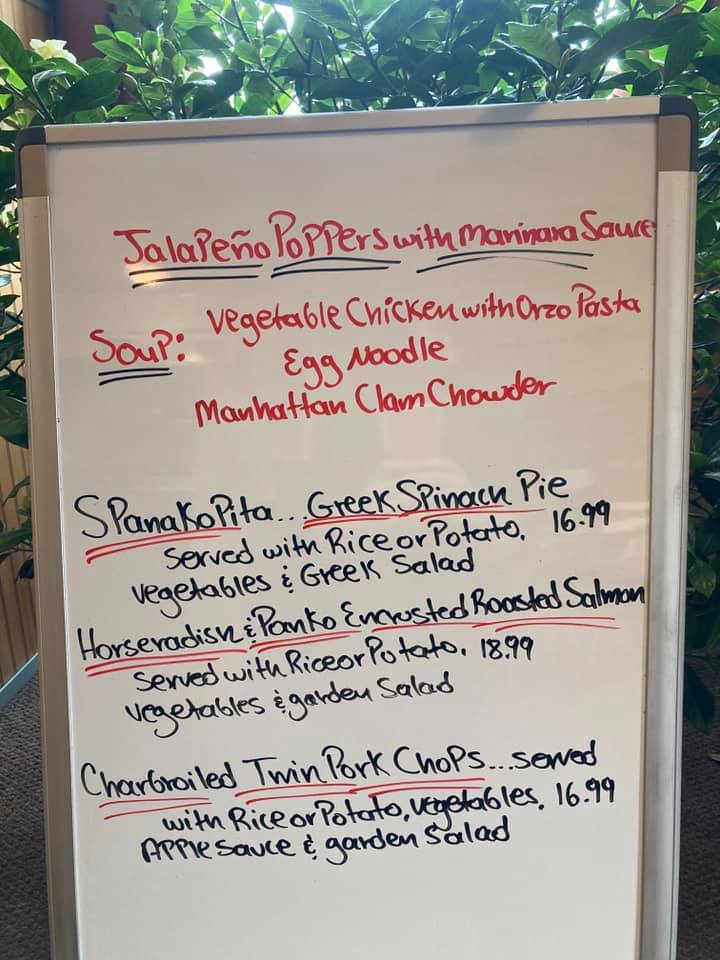 Jalapeño Poppers with Marinara Sauce
Soup: Vegetable Chicken with Orzo Pasta
Egg Noodle
Manhattan Clam Chowder
Spanakopita... Greek Spinach Pie
served with Rice or Potato, 16.99
vegetables & Greek Salad
Horseradish & Panko Encrusted Roasted Salmon
served with Rice or Potato, 18.99
vegetables & garden Salad
Charbroiled Twin Pork Chops... served
with Rice or Potato, vegetables, 16.99
Apple sauce & garden Salad